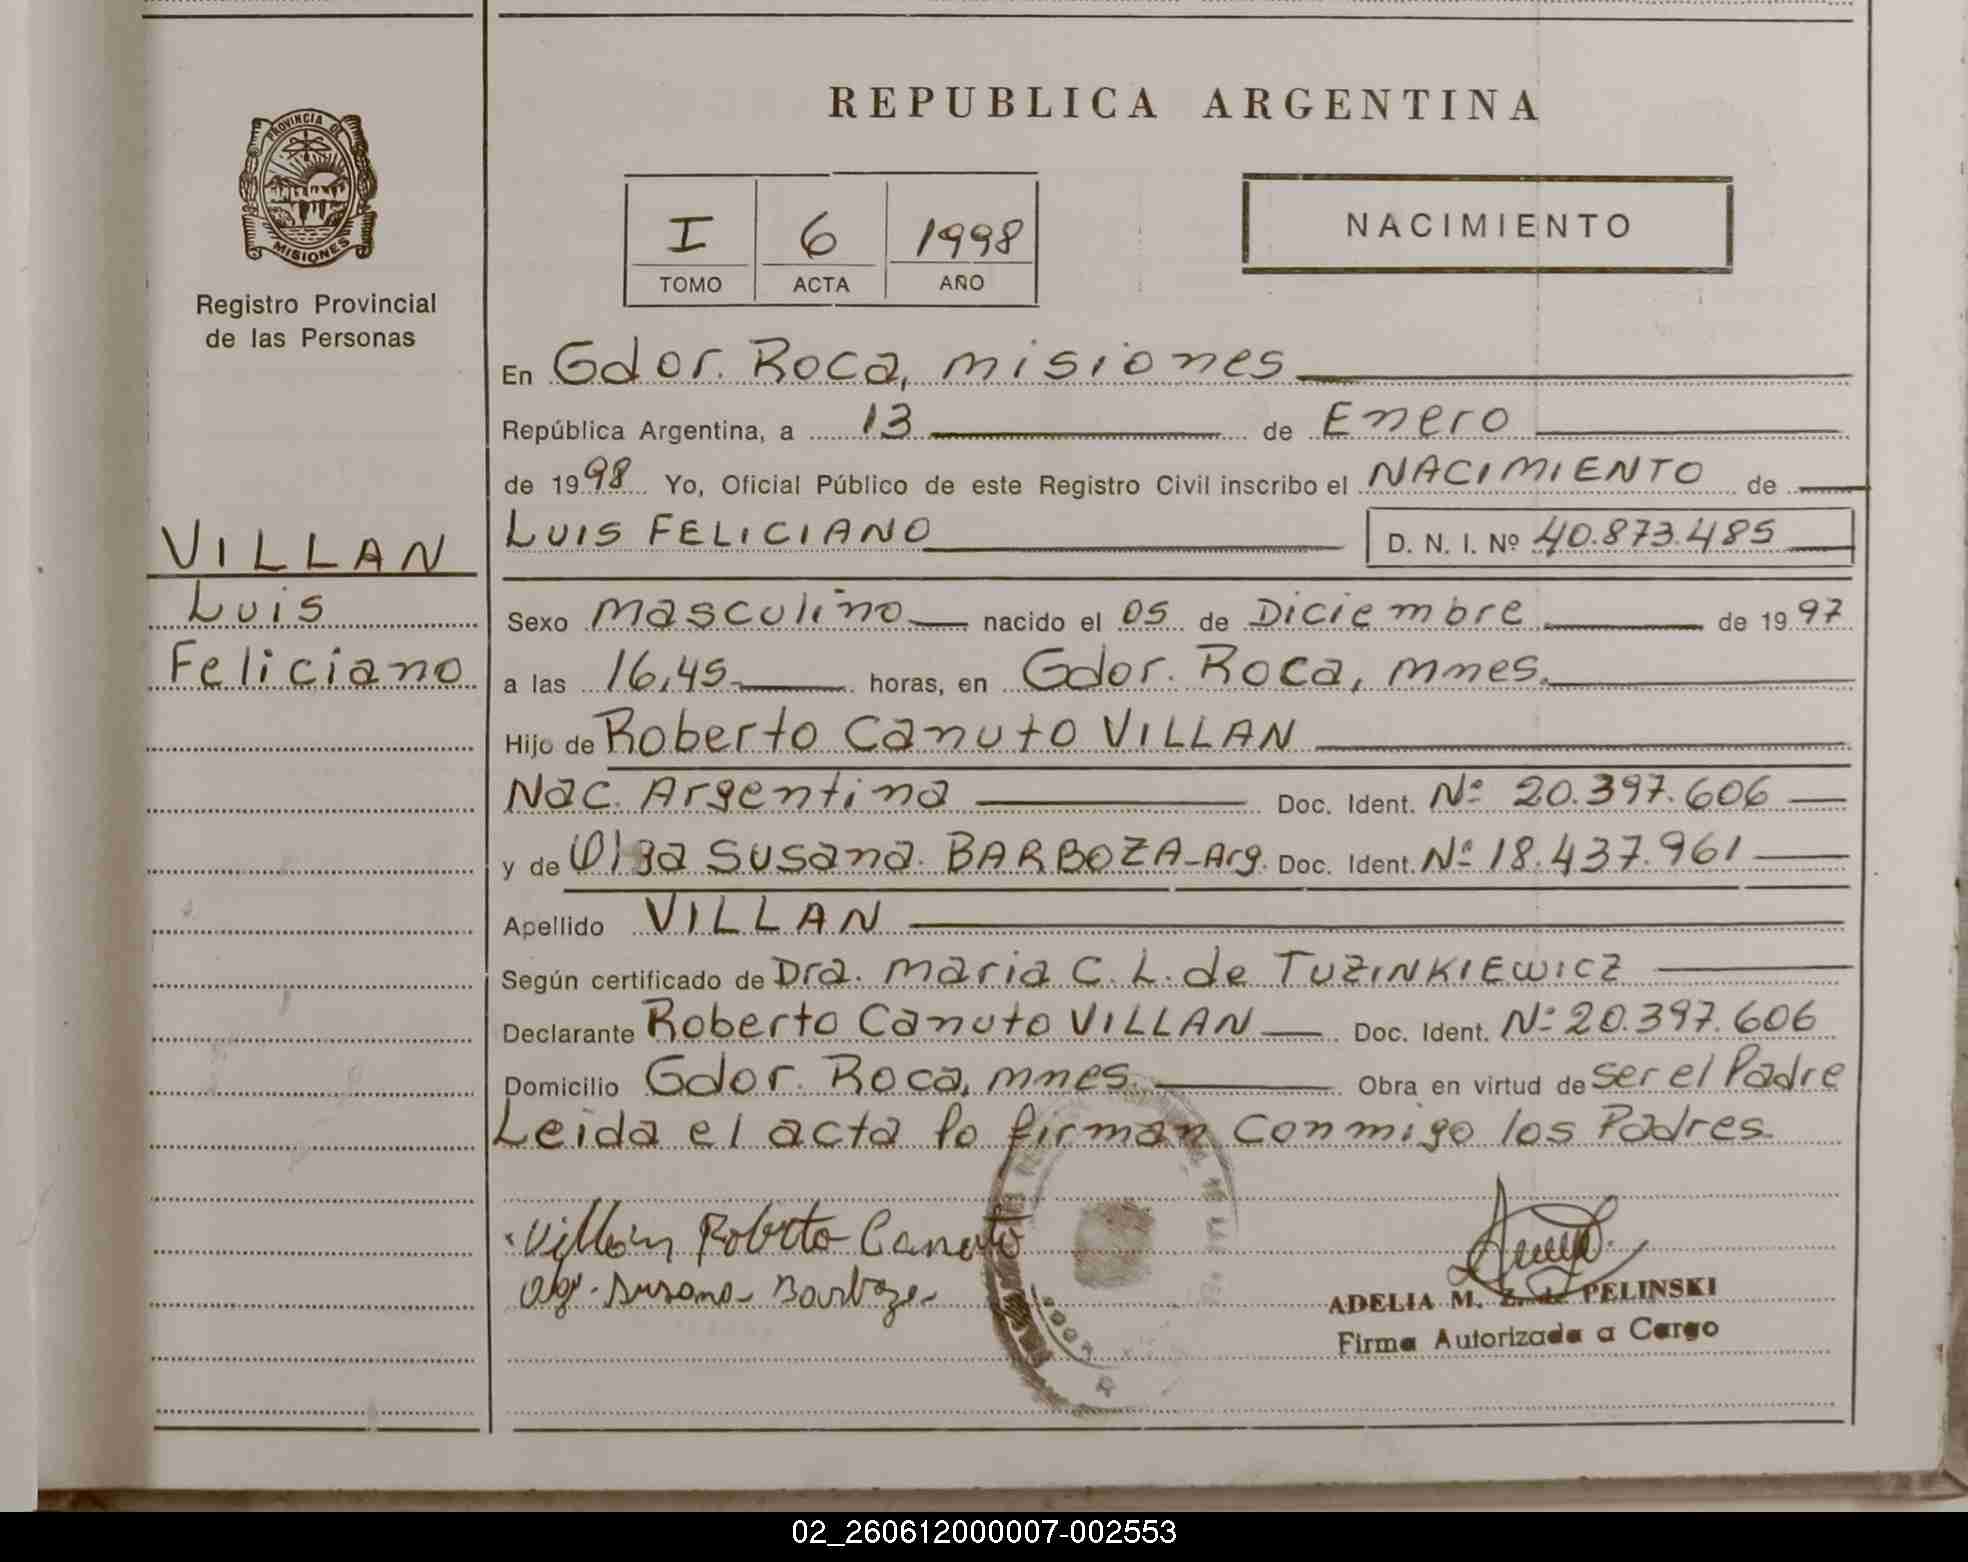 REPUBLICA ARGENTINA
PROVINCIA DE
MISIONES
Registro Provincial
de las Personas
I 6 1998
TOMO ACTA AÑO
NACIMIENTO
En Gdor. Roca, misiones
República Argentina, a 13 de Enero
de 1998 Yo, Oficial Público de este Registro Civil inscribo el NACIMIENTO de
LUIS FELICIANO D. N. I. Nº 40.873.485
VILLAN
Luis
Feliciano
Sexo masculino nacido el 05 de Diciembre de 1997
a las 16,45 horas, en Gdor. Roca, mnes.
Hijo de Roberto Canuto VILLAN
Nac. Argentina Doc. Ident. Nº 20.397.606
y de Olga Susana BARBOZA-Arg. Doc. Ident. Nº 18.437.961
Apellido VILLAN
Según certificado de Dra. maria C. L. de TUZINKIEWICZ
Declarante Roberto Canuto VILLAN Doc. Ident. Nº 20.397.606
Domicilio Gdor. Roca, mnes. Obra en virtud de ser el Padre
Leida el acta lo firman conmigo los Padres
Villan Roberto Canuto
Susana Barboza
ADELIA M. Z. de PELINSKI
Firma Autorizada a Cargo
02_260612000007-002553